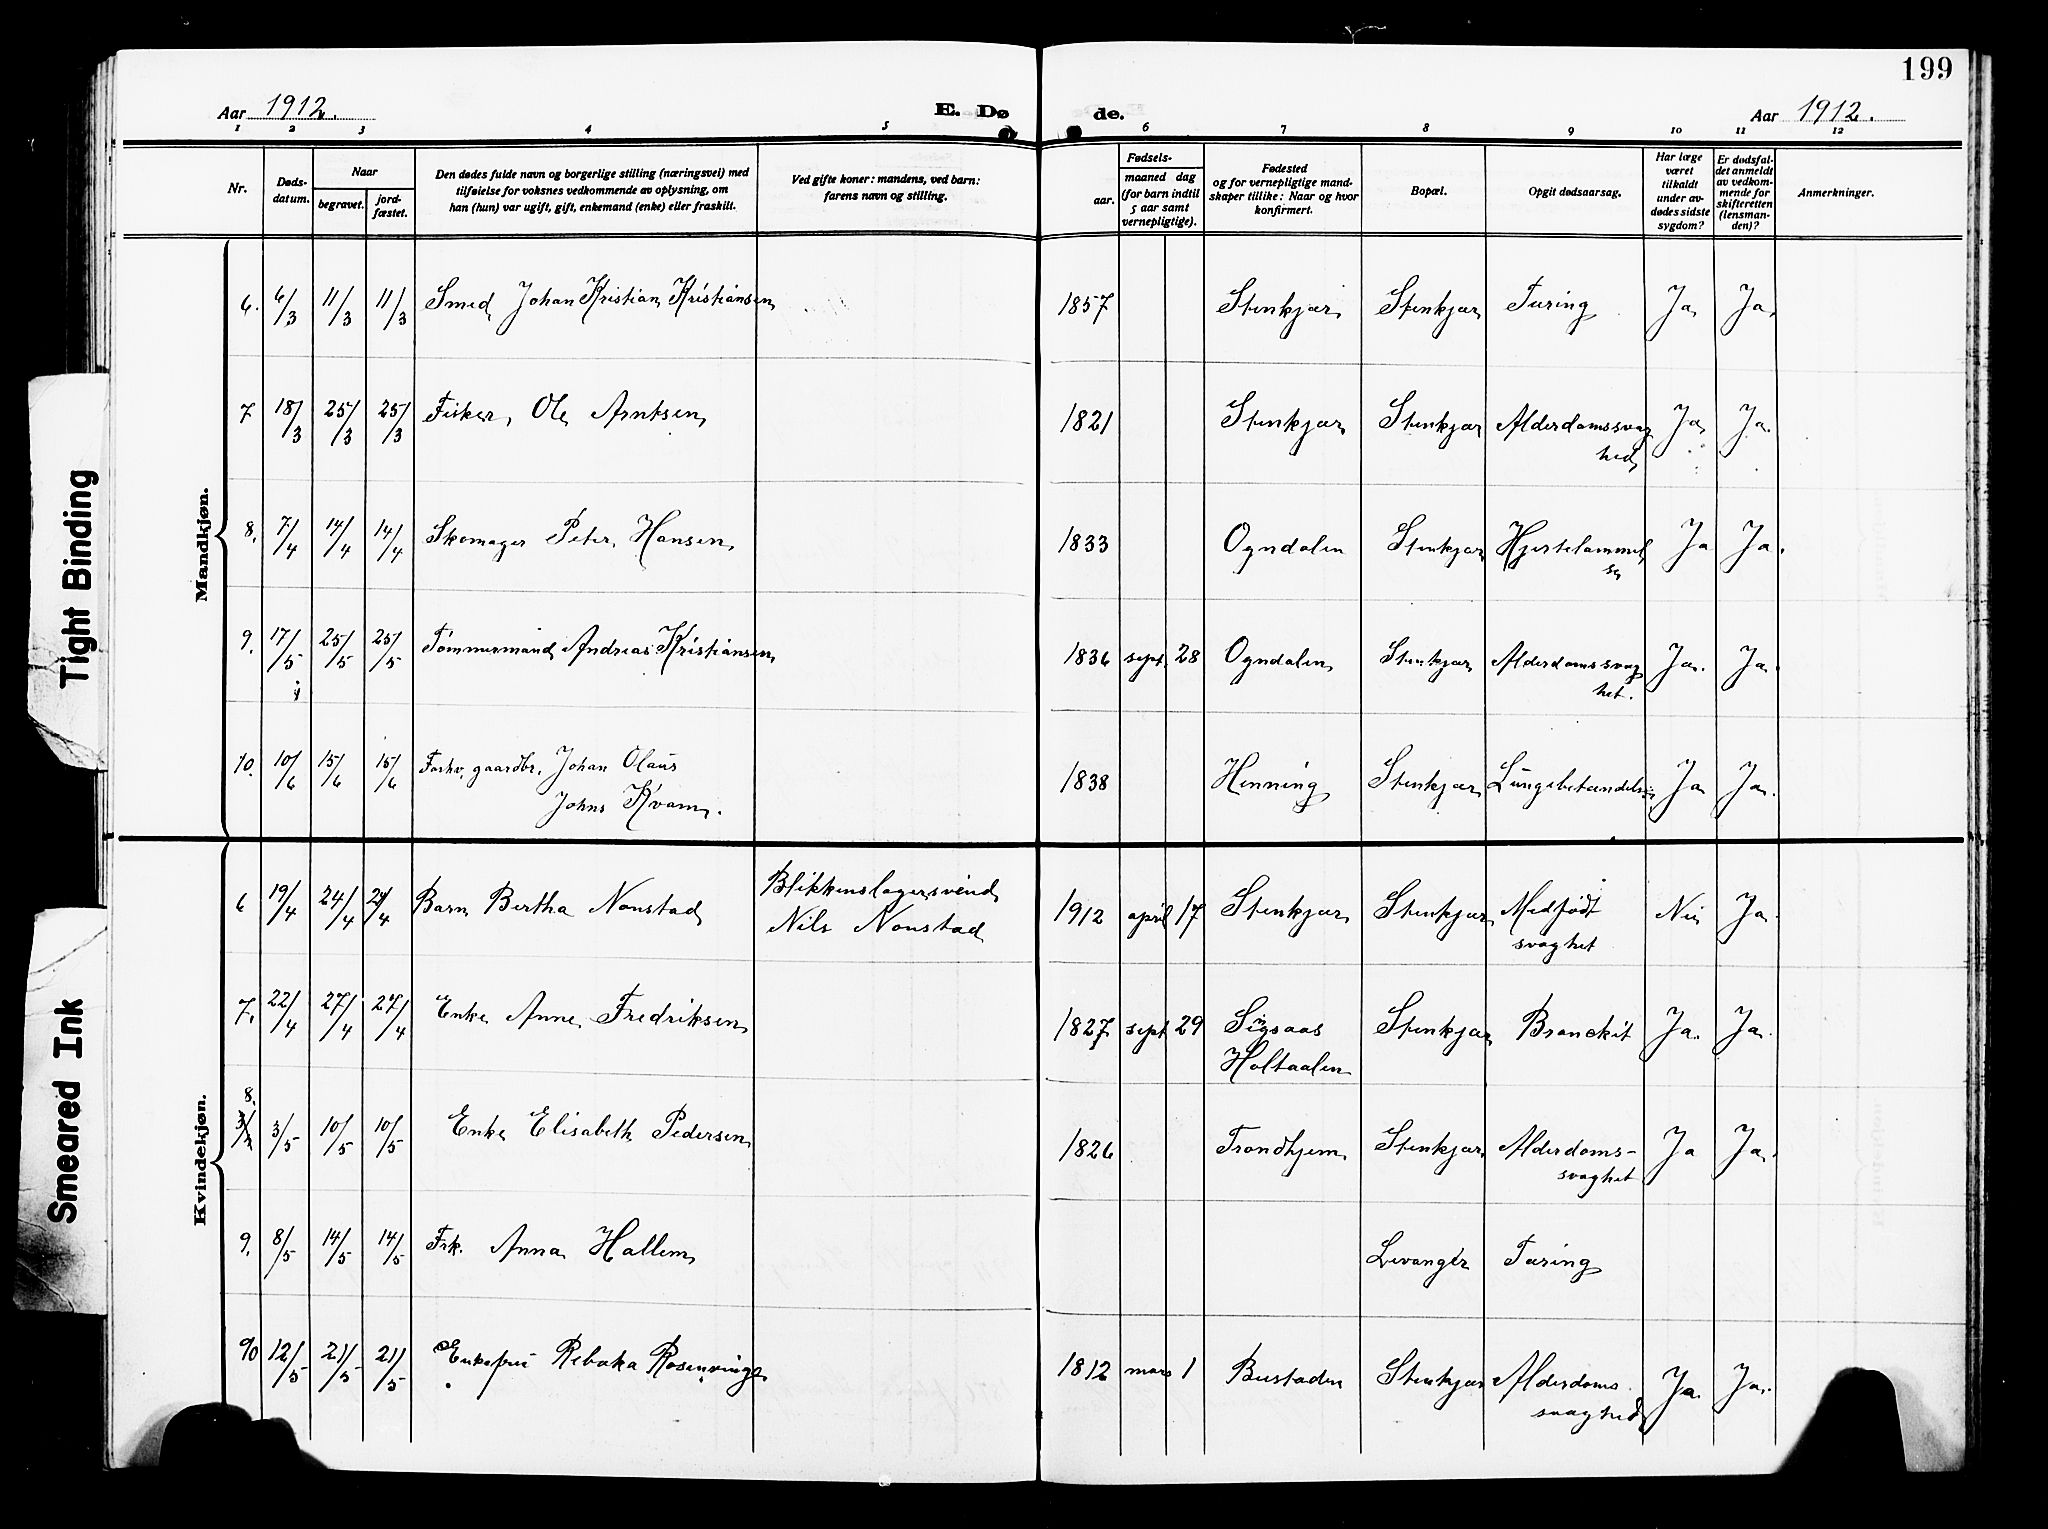 199
Aar 1912. E. Dø de. Aar 1912.
1 2 3 4 5 6 7 8 9 10 11 12
Nr. Døds-datum. Naar begravet. jord-fæstet. Den dødes fulde navn og borgerlige stilling (næringsvei) med tilføielse for voksnes vedkommende av oplysning, om han (hun) var ugift, gift, enkemand (enke) eller fraskilt. Ved gifte koner: mandens, ved barn: farens navn og stilling. Fødsels- aar. maaned dag (for barn indtil 5 aar samt vernepligtige). Fødested og for vernepligtige mand-skaper tillike: Naar og hvor konfirmert. Bopæl. Opgit dødsaarsag. Har læge været tilkaldt under av-dødes sidste sygdom? Er dødsfal-det anmeldt av vedkom-mende for skifteretten (lensman-den)? Anmerkninger.
Mandkjøn.
6. 6/3 11/3 11/3 Smed Johan Kristian Kristiansen 1857 Stenkjær Stenkjær Tæring Ja Ja
7 18/3 25/3 25/3 Fisker Ole Arntsen 1821 Stenkjær Stenkjær Alderdomssvag Ja Ja
hed
8. 7/4 14/4 14/4 Skomager Peter Hansen 1833 Ogndalen Stenkjær Hjertelammel Ja Ja.
se
9. 17/5 25/5 25/5 Tømmermand Andreas Kristiansen 1836 sept 28 Ogndalen Stenkjær Alderdomssvag Ja. Ja.
het.
10. 10/6 15/6 15/6 Forhv. gaardbr. Johan Olaus 1838 Henning Stenkjær Lungebetændelse Ja Ja.
Johns Kvam.
Kvindekjøn.
6 19/4 24/4 24/4 Barn Bertha Nonstad Blikkenslagersvend 1912 april 17 Stenkjær Stenkjær Medfødt Nei Ja.
Nils Nonstad svaghet
7. 22/4 27/4 27/4 Enke Anne Fredriksen 1827 sept 29 Singsaas Stenkjær Bronckit Ja. Ja.
Holtaalen
8. 3/5 10/5 10/5 Enke Elisabeth Pedersen 1826 Trondhjem Stenkjær Alderdoms- Ja Ja.
svaghet
9. 8/5 14/5 14/5 Frk. Anna Hallem Levanger Tæring
10 12/5 21/5 21/5 Enkefru Rebeka Rosenvinge 1812 mars 1 Bustaden Stenkjær Alderdoms Ja Ja.
svaghed
Tight Binding
Smeared Ink